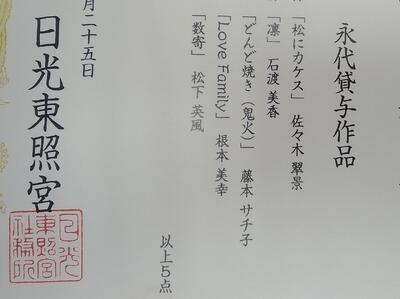 永代貸与作品
「松にカケス」 佐々木 翠景
「凛」 石渡 美香
「どんど焼き(鬼火)」 藤本 サチ子
「Love Family」 根本 美幸
「数寄」 松下 英風
以上5点
月二十五日
日光東照宮
日光
東照宮
社務所